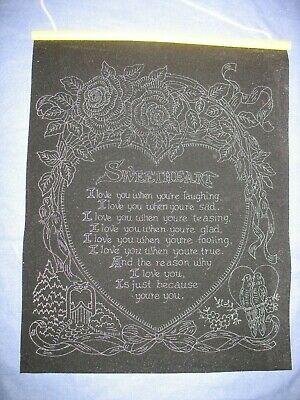 SWEETHEART
I love you when you're laughing,
I love you when you're sad,
I love you when you're teasing,
I love you when you're glad,
I love you when you're fooling,
I love you when you're true,
And the reason why
I love you,
Is just because
you're you.